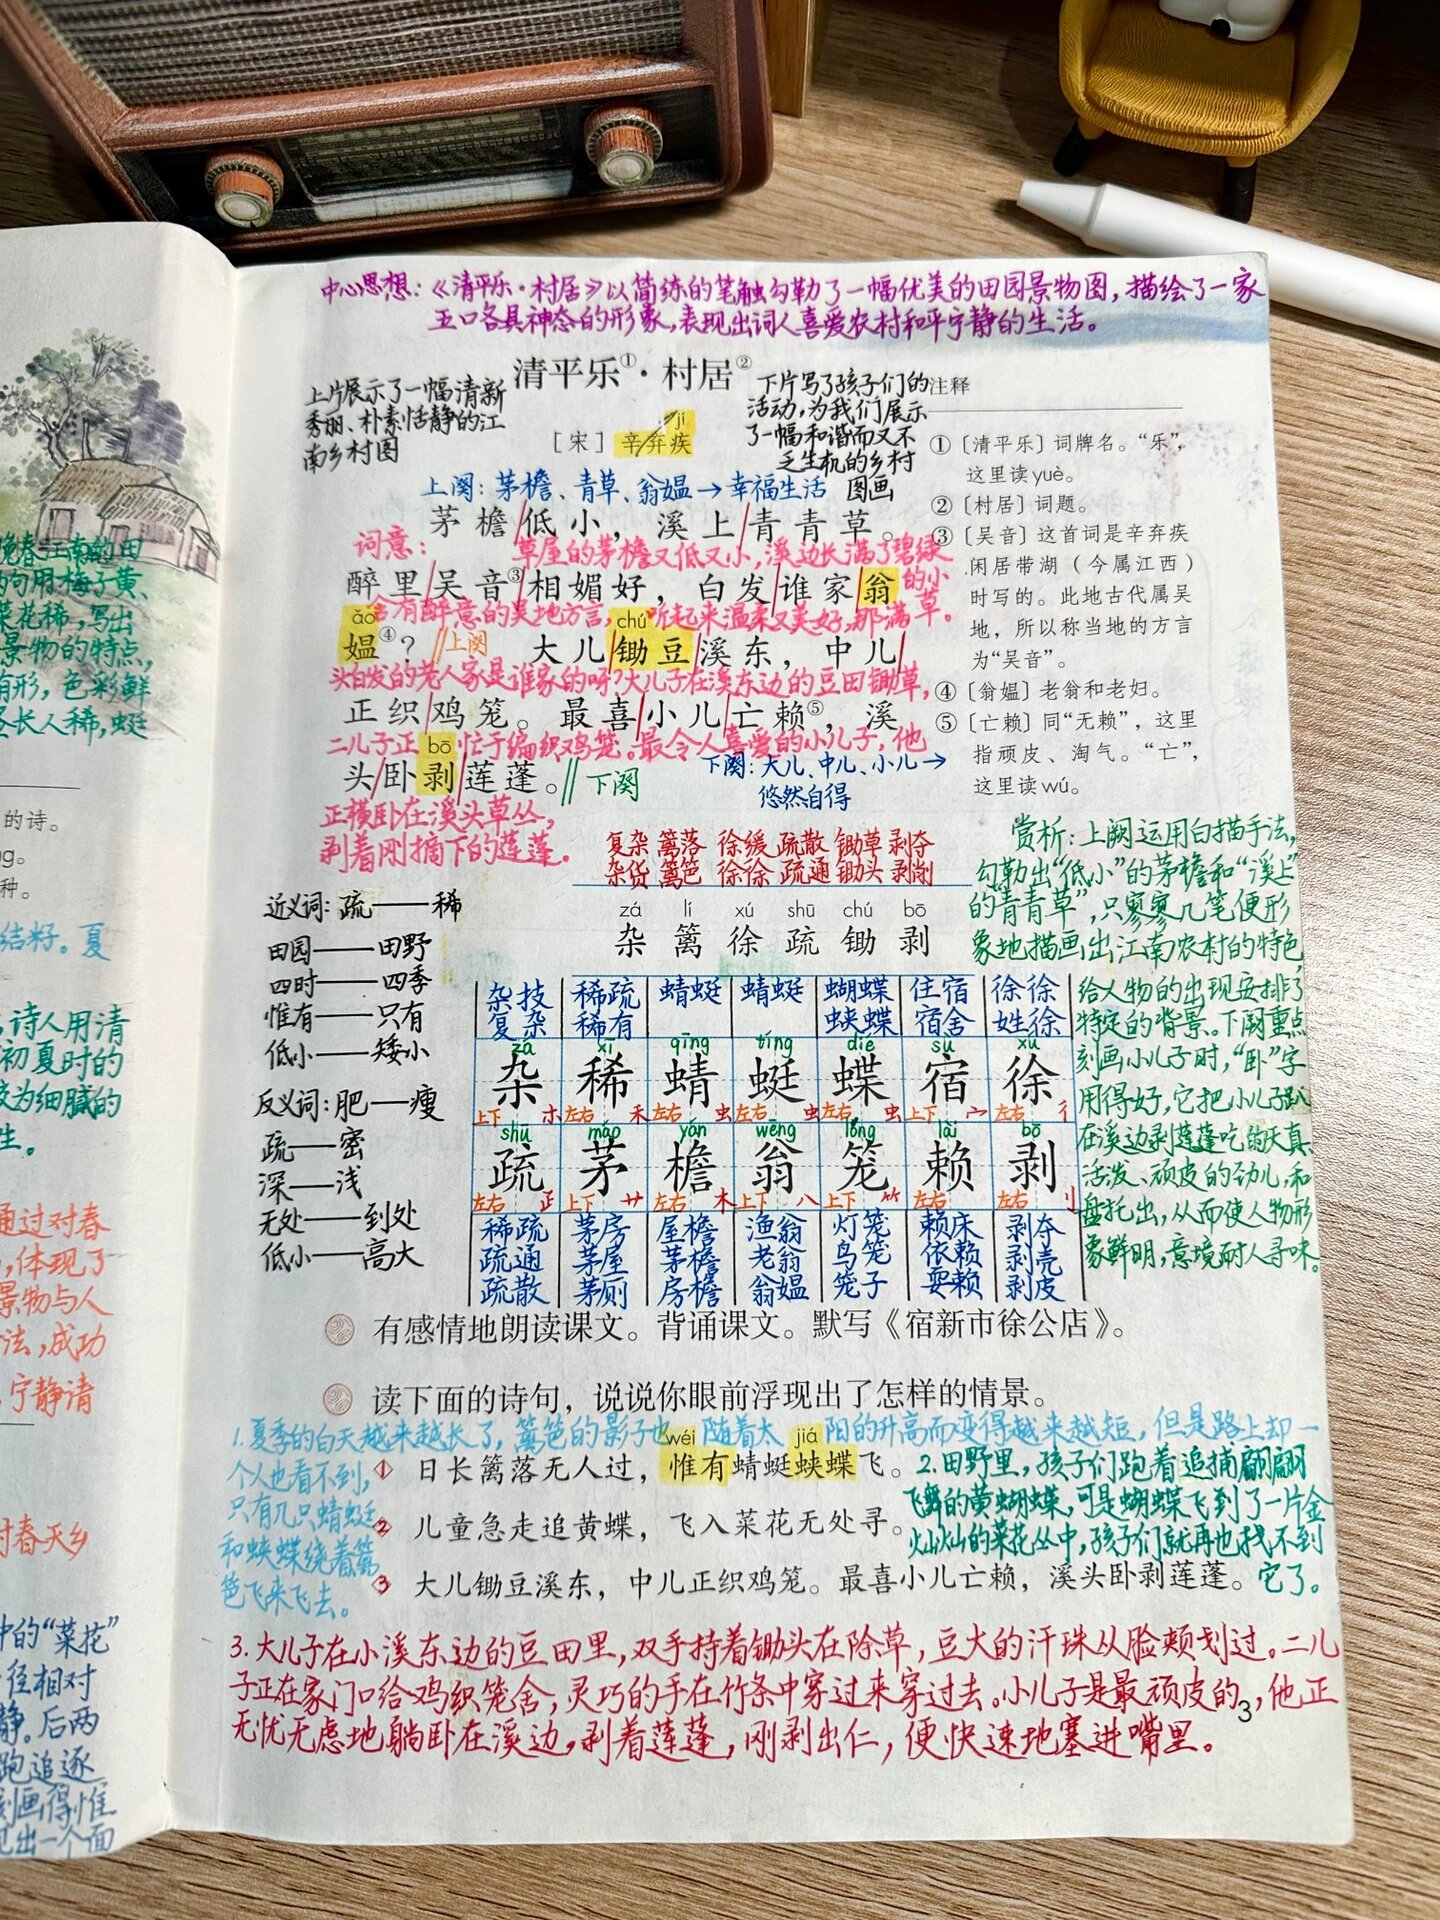 中心思想：《清平乐·村居》以简练的笔触勾勒了一幅优美的田园景物图，描绘了一家
五口各具神态的形象，表现出词人喜爱农村和平宁静的生活。
清平乐①·村居②
上片展示了一幅清新
秀丽、朴素恬静的江
南乡村图
下片写了孩子们的
活动，为我们展示
了一幅和谐而又不
乏生机的乡村
图画
jí
［宋］辛弃疾
上阕：茅檐、青草、翁媪→幸福生活
茅檐/低小，溪上/青青草。
词意：草屋的茅檐又低又小，溪边长满了碧绿
的小
草。
醉里/吴音③/相媚好，白发/谁家/翁
含有醉意的吴地方言，听起来温柔又美好，那满
ǎo
chú
媪④？//上阕 大儿/锄豆/溪东，中儿/
头白发的老人家是谁家的呀？大儿子在溪东边的豆田锄草，
正织/鸡笼。最喜/小儿/亡赖⑤，溪
二儿子正忙于编织鸡笼。最令人喜爱的小儿子，他
bō
头/卧/剥/莲蓬。//下阕
下阕：大儿、中儿、小儿→
悠然自得
正横卧在溪头草丛，
剥着刚摘下的莲蓬。
注释
①［清平乐］词牌名。“乐”，
这里读yuè。
②［村居］词题。
③［吴音］这首词是辛弃疾
闲居带湖（今属江西）
时写的。此地古代属吴
地，所以称当地的方言
为“吴音”。
④［翁媪］老翁和老妇。
⑤［亡赖］同“无赖”，这里
指顽皮、淘气。“亡”，
这里读wú。
复杂 篱落 徐缓 疏散 锄草 剥夺
杂货 篱笆 徐徐 疏通 锄头 剥削
zá lí xú shū chú bō
杂 篱 徐 疏 锄 剥
近义词：疏——稀
田园——田野
四时——四季
惟有——只有
低小——矮小
反义词：肥——瘦
疏——密
深——浅
无处——到处
低小——高大
杂技 稀疏 蜻蜓 蜻蜓 蝴蝶 住宿 徐徐
复杂 稀有 蛱蝶 宿舍 姓徐
zá xī qīng tíng dié sù xú
杂 稀 蜻 蜓 蝶 宿 徐
上下 木 左右 禾 左右 虫 左右 虫 左右 虫 上下 宀 左右 彳
shū máo yán wēng lóng lài bō
疏 茅 檐 翁 笼 赖 剥
左右 上下 艹 左右 木 上下 八 上下 ⺮ 左右 左右 刂
稀疏 茅房 屋檐 渔翁 灯笼 赖床 剥夺
疏通 茅屋 茅檐 老翁 鸟笼 依赖 剥壳
疏散 茅厕 房檐 翁媪 笼子 耍赖 剥皮
赏析：上阕运用白描手法，
勾勒出“低小”的茅檐和“溪上”
的“青青草”，只寥寥几笔便形
象地描画出江南农村的特色，
给人物的出现安排了
特定的背景。下阕重点
刻画小儿子时，“卧”字
用得好，它把小儿子趴
在溪边剥莲蓬吃的天真、
活泼、顽皮的劲儿，和
盘托出，从而使人物形
象鲜明，意境耐人寻味。
有感情地朗读课文。背诵课文。默写《宿新市徐公店》。
读下面的诗句，说说你眼前浮现出了怎样的情景。
1.夏季的白天越来越长了，篱笆的影子也随着太阳的升高而变得越来越短，但是路上却一
个人也看不到，
只有几只蜻蜓
和蛱蝶绕着篱
笆飞来飞去。
wéi jiá
① 日长篱落无人过，惟有蜻蜓蛱蝶飞。
② 儿童急走追黄蝶，飞入菜花无处寻。
③ 大儿锄豆溪东，中儿正织鸡笼。最喜小儿亡赖，溪头卧剥莲蓬。
2.田野里，孩子们跑着追捕翩翩
飞舞的黄蝴蝶，可是蝴蝶飞到了一片金
灿灿的菜花丛中，孩子们就再也找不到
它了。
3.大儿子在小溪东边的豆田里，双手持着锄头在除草，豆大的汗珠从脸颊划过。二儿
子正在家门口给鸡织笼舍，灵巧的手在竹条中穿过来穿过去。小儿子是最顽皮的，他正
无忧无虑地躺卧在溪边，剥着莲蓬，刚剥出仁，便快速地塞进嘴里。
3
晚春江南的田
句用梅子黄、
菜花稀，写出
景物的特点，
有形，色彩鲜
长人稀，蜓
的诗。
种。
结籽。夏
，诗人用清
初夏时的
较为细腻的
生。
通过对春
，体现了
景物与人
法，成功
宁静清
对春天乡
中的“菜花”
径相对
静。后两
跑追逐
刻画得惟
出一个面